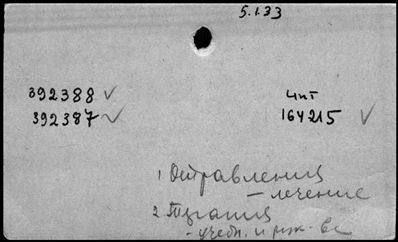 5.1.33
392388 ✓
чит
392387 ✓
164215 ✓
1. Отравления
— лечение
2.
- учебн. и рук-ва